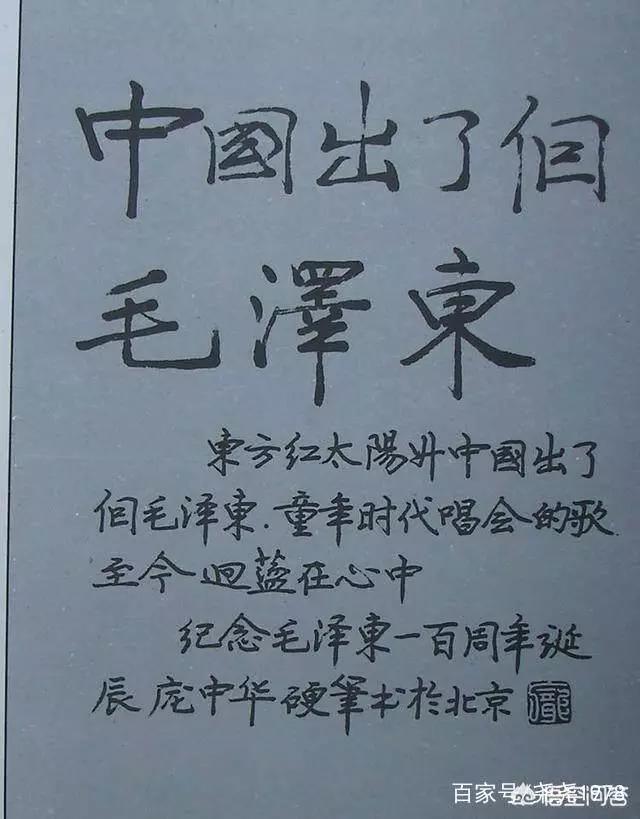 中國出了個
毛澤東
東方红太陽升中國出了
個毛泽東.童年时代唱会的歌
至今迴蕩在心中
纪念毛泽東一百周年诞
辰庞中华硬筆书於北京
百家号/尧尧1978
悟空问答